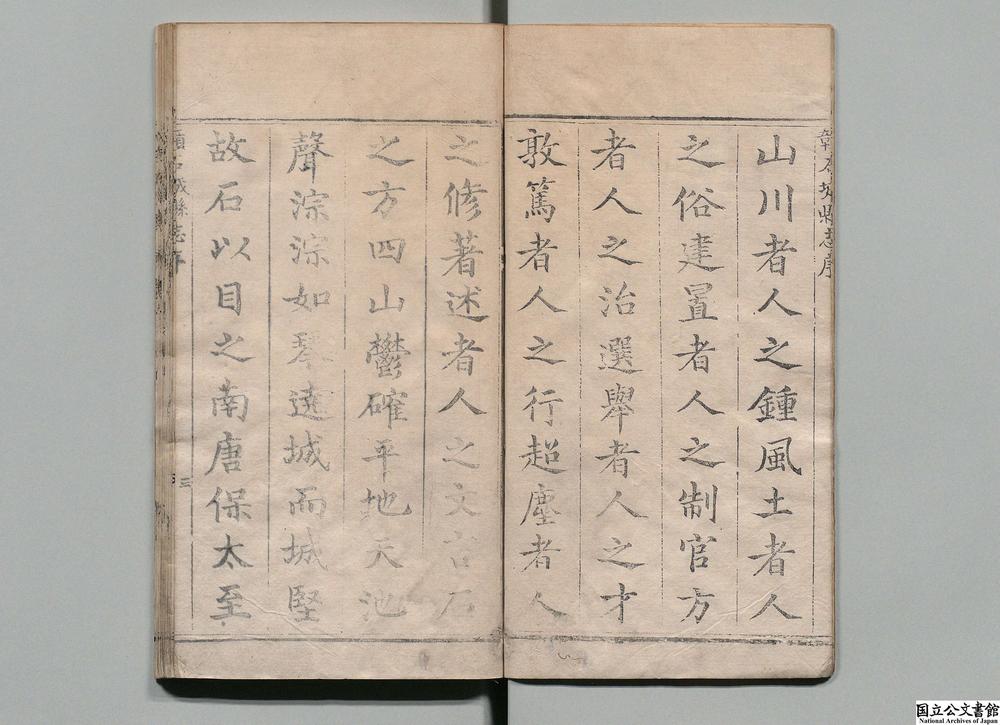 山川者人之鍾風土者人
之俗建置者人之制官方
者人之治選舉者人之才
敦篤者人之行超塵者人
之修著述者人之文古石
之方四山鬱確平地天池
聲淙淙如琴遶城而城堅
故石以目之南唐保太至
國立公文書館
National Archives of Japan